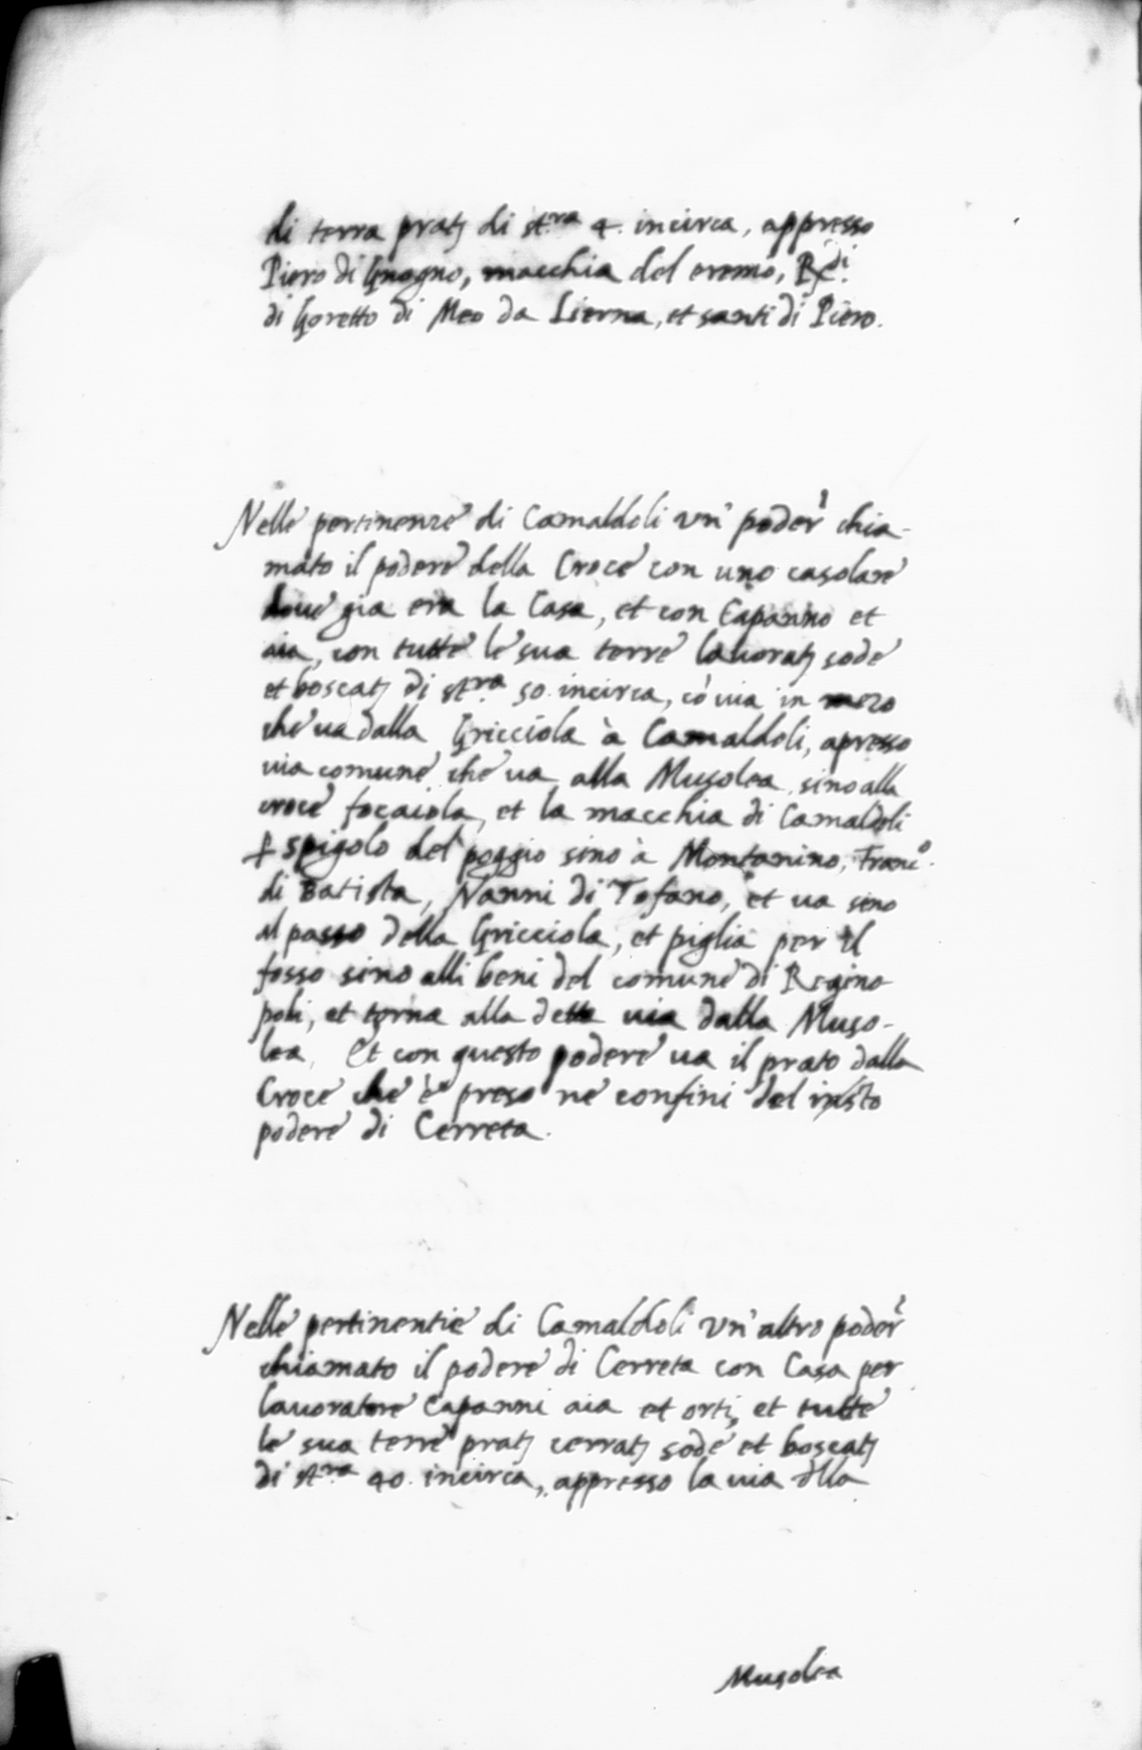 di terra pratj di st.ra 4. incirca, appresso
Piero di Gnogno, macchia del eremo, Rede di
di Goretto di Meo da Lierna, et santi di Piero.
Nelle pertinenze di Camaldoli un' poder chia-
mato il podere della Croce con uno casolare
doue gia era la Casa, et con Capanno et
aia, con tutte le sua terre lauoratj sode
et boscatj di st.ra 50. incirca, cò uia in mezo
che ua dalla Gricciola à Camaldoli, apresso
uia comune che ua alla Musolea, sino alla
croce focaiola, et la macchia di Camaldoli
p spigolo del poggio sino à Montanino, Franc.o
di Batista, Nanni di Tofano, et ua sino
al passo della Gricciola, et piglia per il
fosso sino alli beni del comune di Regino
poli, et torna alla detta uia dalla Muso-
lea. Et con questo podere ua il prato dalla
Croce che è preso ne confini del
podere di Cerreta.
Nelle pertinentie di Camaldoli un' altro poder
chiamato il podere di Cerreta con Casa per
lauoratore Capanni aia et orti, et tutte
le sua terre pratj cerratj sode et boscatj
di st.ra 40. incirca, appresso la uia dlla
Musolea